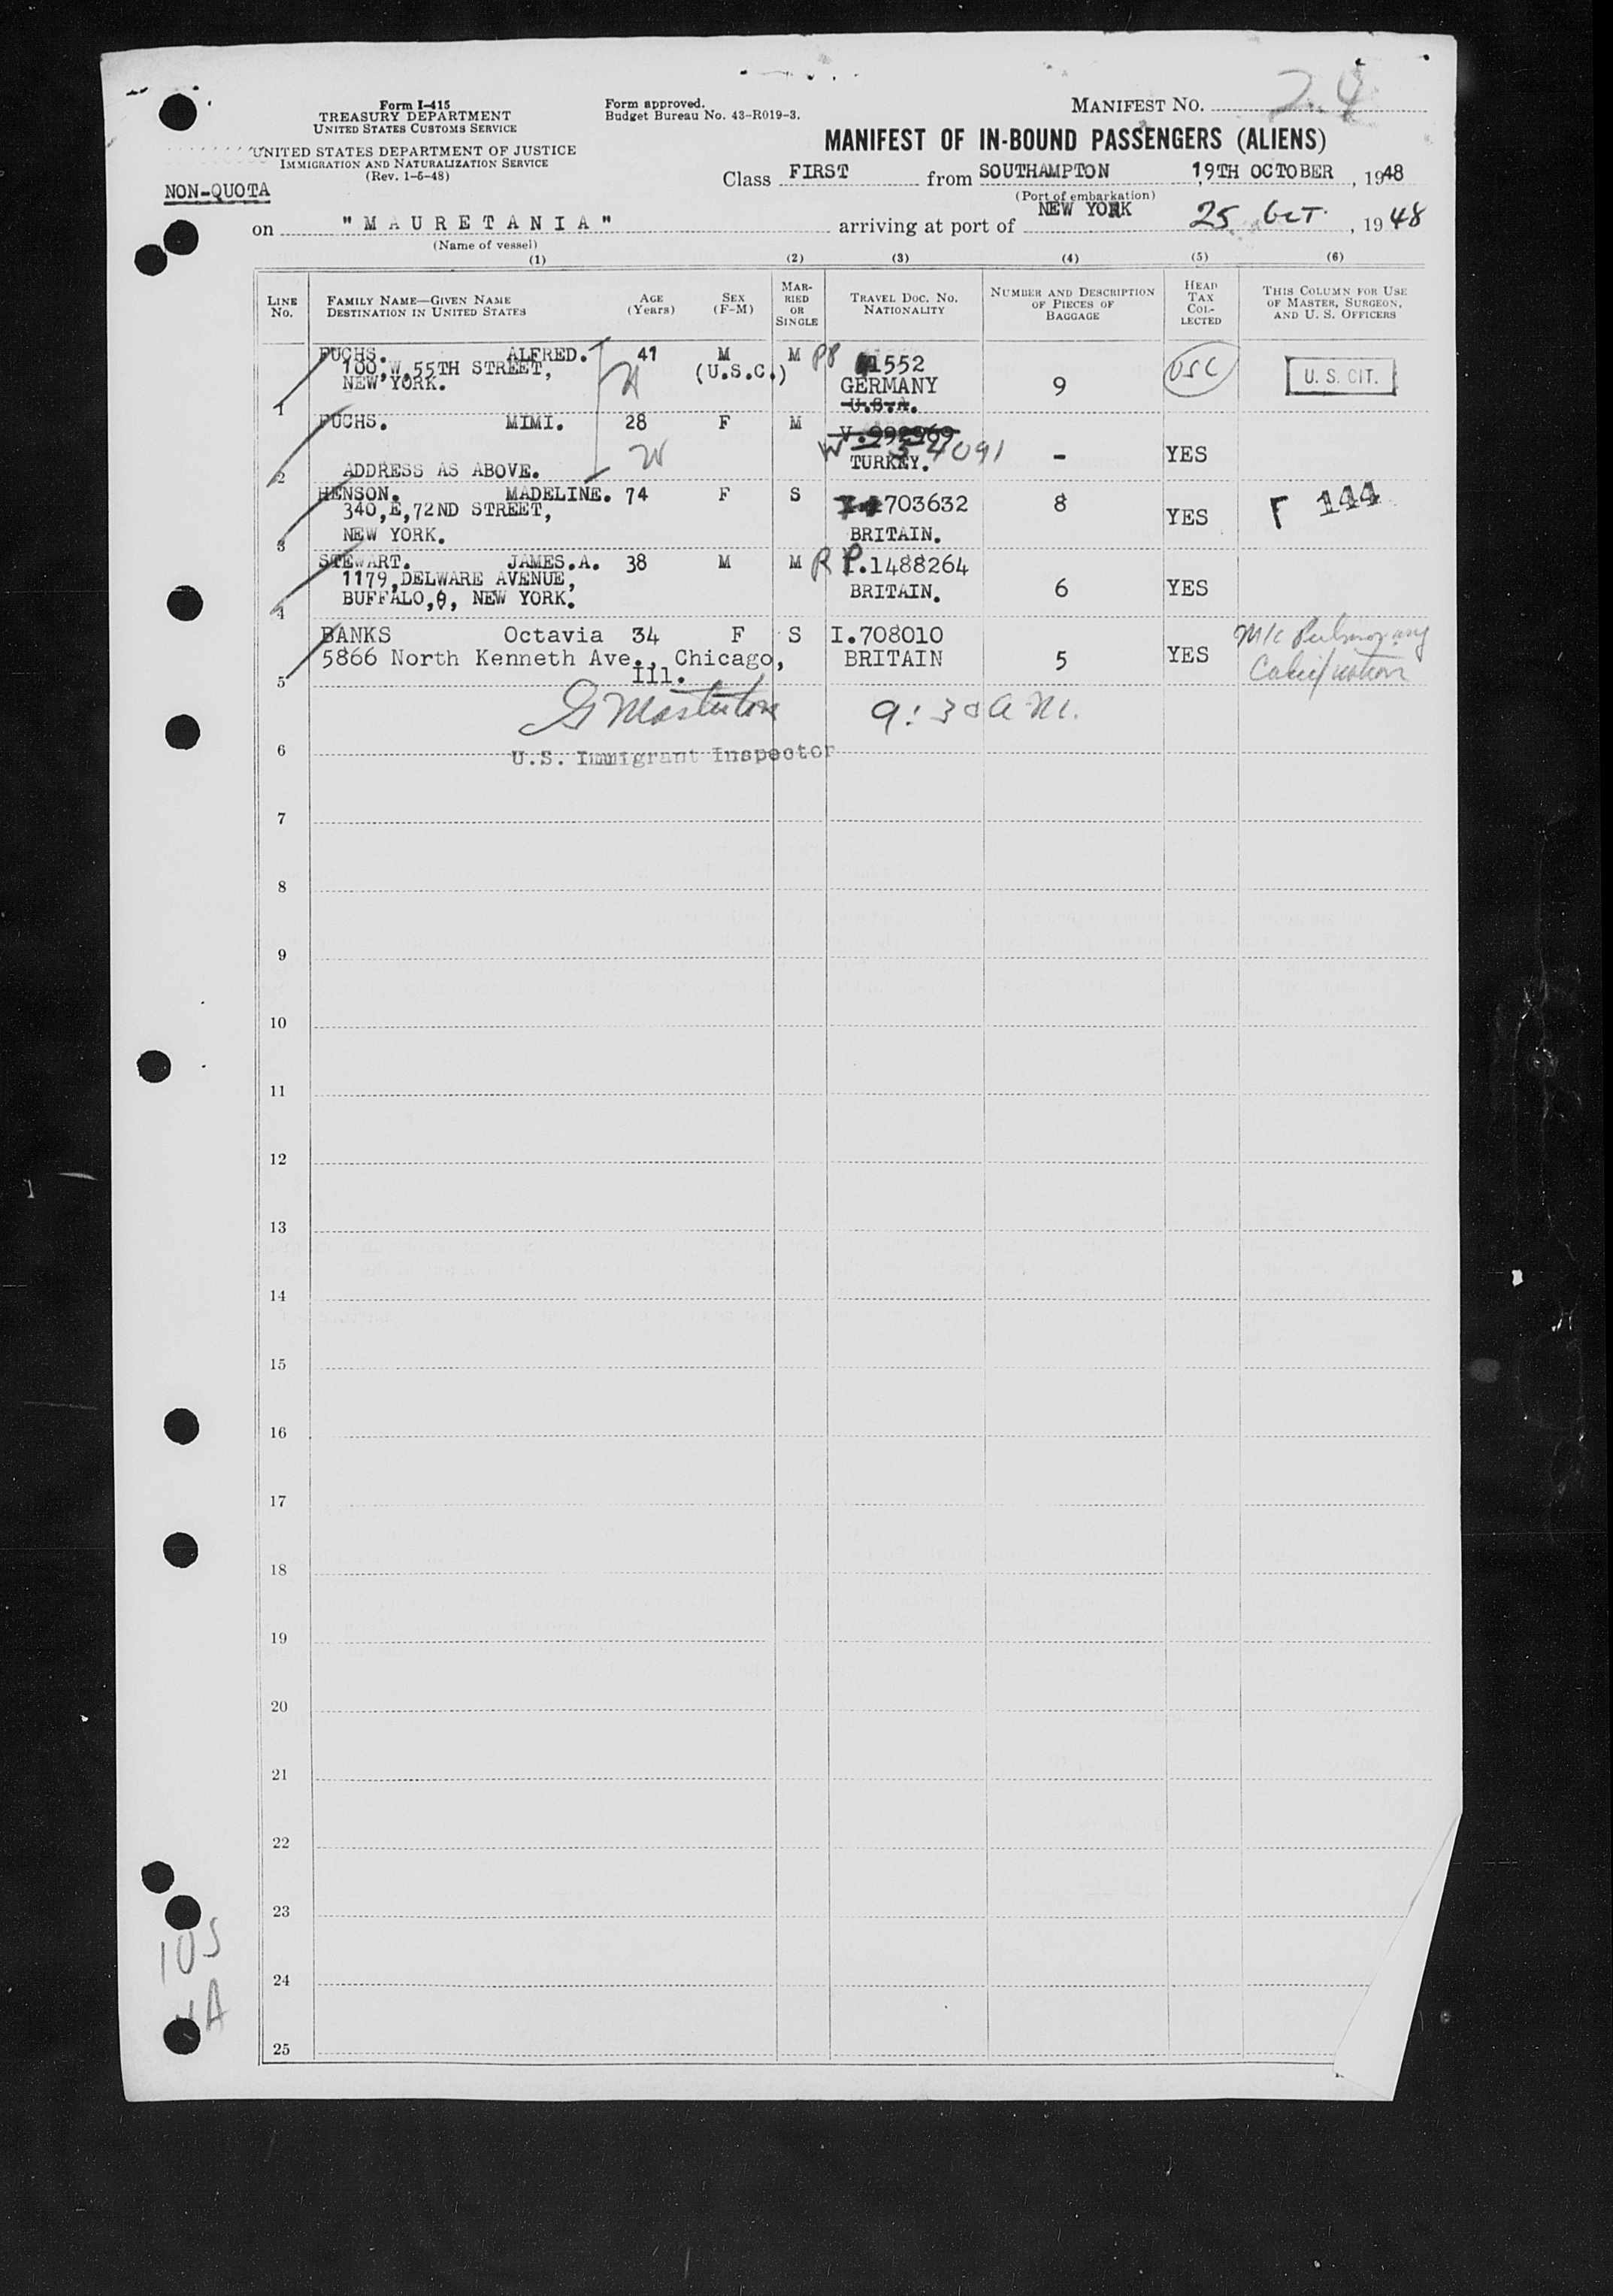 Form I-415
TREASURY DEPARTMENT
UNITED STATES CUSTOMS SERVICE
UNITED STATES DEPARTMENT OF JUSTICE
IMMIGRATION AND NATURALIZATION SERVICE
(Rev. 1-6-48)
Form approved.
Budget Bureau No. 43-R019-3.
MANIFEST NO. 24
MANIFEST OF IN-BOUND PASSENGERS (ALIENS)
NON-QUOTA
Class FIRST from SOUTHAMPTON 19TH OCTOBER, 1948
(Port of embarkation)
on "MAURETANIA" arriving at port of NEW YORK 25 Oct., 1948
(Name of vessel)
(1) (2) (3) (4) (5) (6)
LINE No. FAMILY NAME—GIVEN NAME DESTINATION IN UNITED STATES AGE (Years) SEX (F-M) MARRIED OR SINGLE TRAVEL DOC. NO. NATIONALITY NUMBER AND DESCRIPTION OF PIECES OF BAGGAGE HEAD TAX COLLECTED THIS COLUMN FOR USE OF MASTER, SURGEON, AND U. S. OFFICERS
1 FUCHS. ALFRED. 41 M M PP 1552
100,W,55TH STREET, (U.S.C.) GERMANY 9 USC U. S. CIT.
NEW YORK. U.S.A.
2 FUCHS. MIMI. 28 F M V.992969
W 54091
ADDRESS AS ABOVE. W TURKEY. - YES
3 HENSON. MADELINE. 74 F S 703632 8 YES F 144
340,E,72ND STREET,
NEW YORK. BRITAIN.
4 STEWART. JAMES.A. 38 M M RP.1488264
1179,DELWARE AVENUE, BRITAIN. 6 YES
BUFFALO,9, NEW YORK.
5 BANKS Octavia 34 F S I.708010
5866 North Kenneth Ave., Chicago, BRITAIN 5 YES
Ill.
9:30 A M.
6 U.S. Immigrant Inspector
7
8
9
10
11
12
13
14
15
16
17
18
19
20
21
22
23
24
25
105